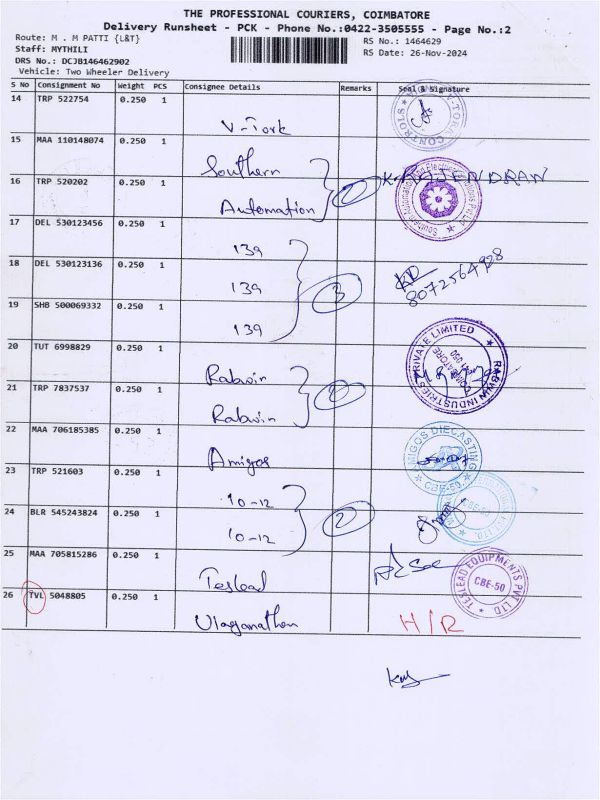 THE PROFESSIONAL COURIERS, COIMBATORE
Delivery Runsheet - PCK - Phone No.:0422-3505555 - Page No.:2
Route: M . M PATTI {L&T}
RS No.: 1464629
Staff: MYTHILI
RS Date: 26-Nov-2024
DRS No.: DCJB146462902
Vehicle: Two Wheeler Delivery
S No Consignment No Weight PCS Consignee Details Remarks Seal & Signature
14 TRP 522754 0.250 1 V-Tork
15 MAA 110148074 0.250 1 Southern
16 TRP 520202 0.250 1 Automation 2 K. RAJENDRAN
17 DEL 530123456 0.250 1 139
18 DEL 530123136 0.250 1 139 3 8072564928
19 SHB 500069332 0.250 1 139
20 TUT 6998829 0.250 1 Rabwin
21 TRP 7837537 0.250 1 Rabwin 2 RABWIN INDUSTRIES PRIVATE LIMITED
22 MAA 706185385 0.250 1 Amigos AMIGOS DIECASTING CBE-50
23 TRP 521603 0.250 1 10-12
24 BLR 545243824 0.250 1 10-12 2
25 MAA 705815286 0.250 1 Teslead TESLEAD EQUIPMENTS PVT LTD. CBE-50
26 TVL 5048805 0.250 1 Ulaganathan H/R